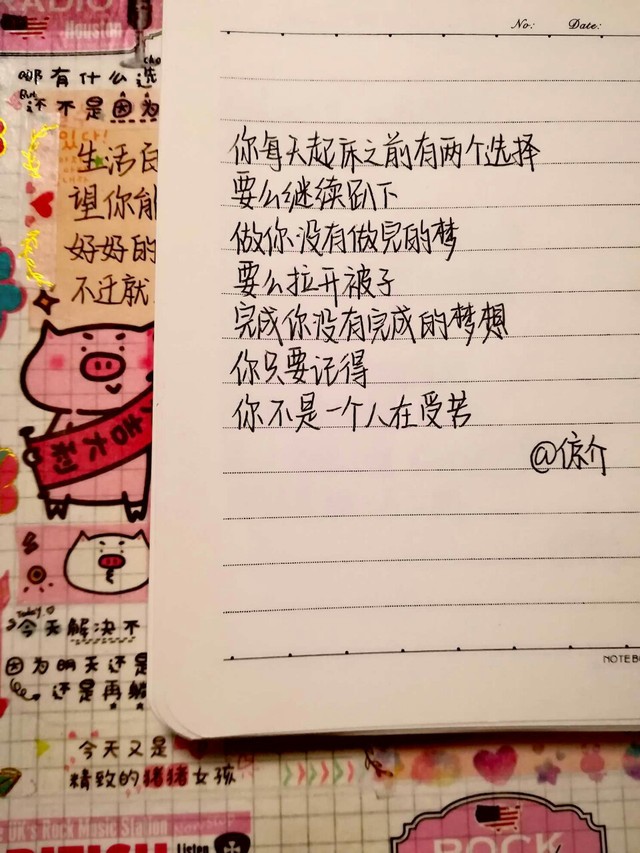 No:
Date:
你每天起床之前有两个选择
要么继续趴下
做你没有做完的梦
要么拉开被子
完成你没有完成的梦想
你只要记得
你不是一个人在受苦
@倞介
NOTEB
RADIO
Houston
那有什么选
But
还不是因为
生活
望你能
好好的
不迁就
吉大利
Today
今天解决不
因为明天还是
还是再躺
今天又是
精致的猪猪女孩
UK's Rock Music Station
RITISH
Listen
ROCK